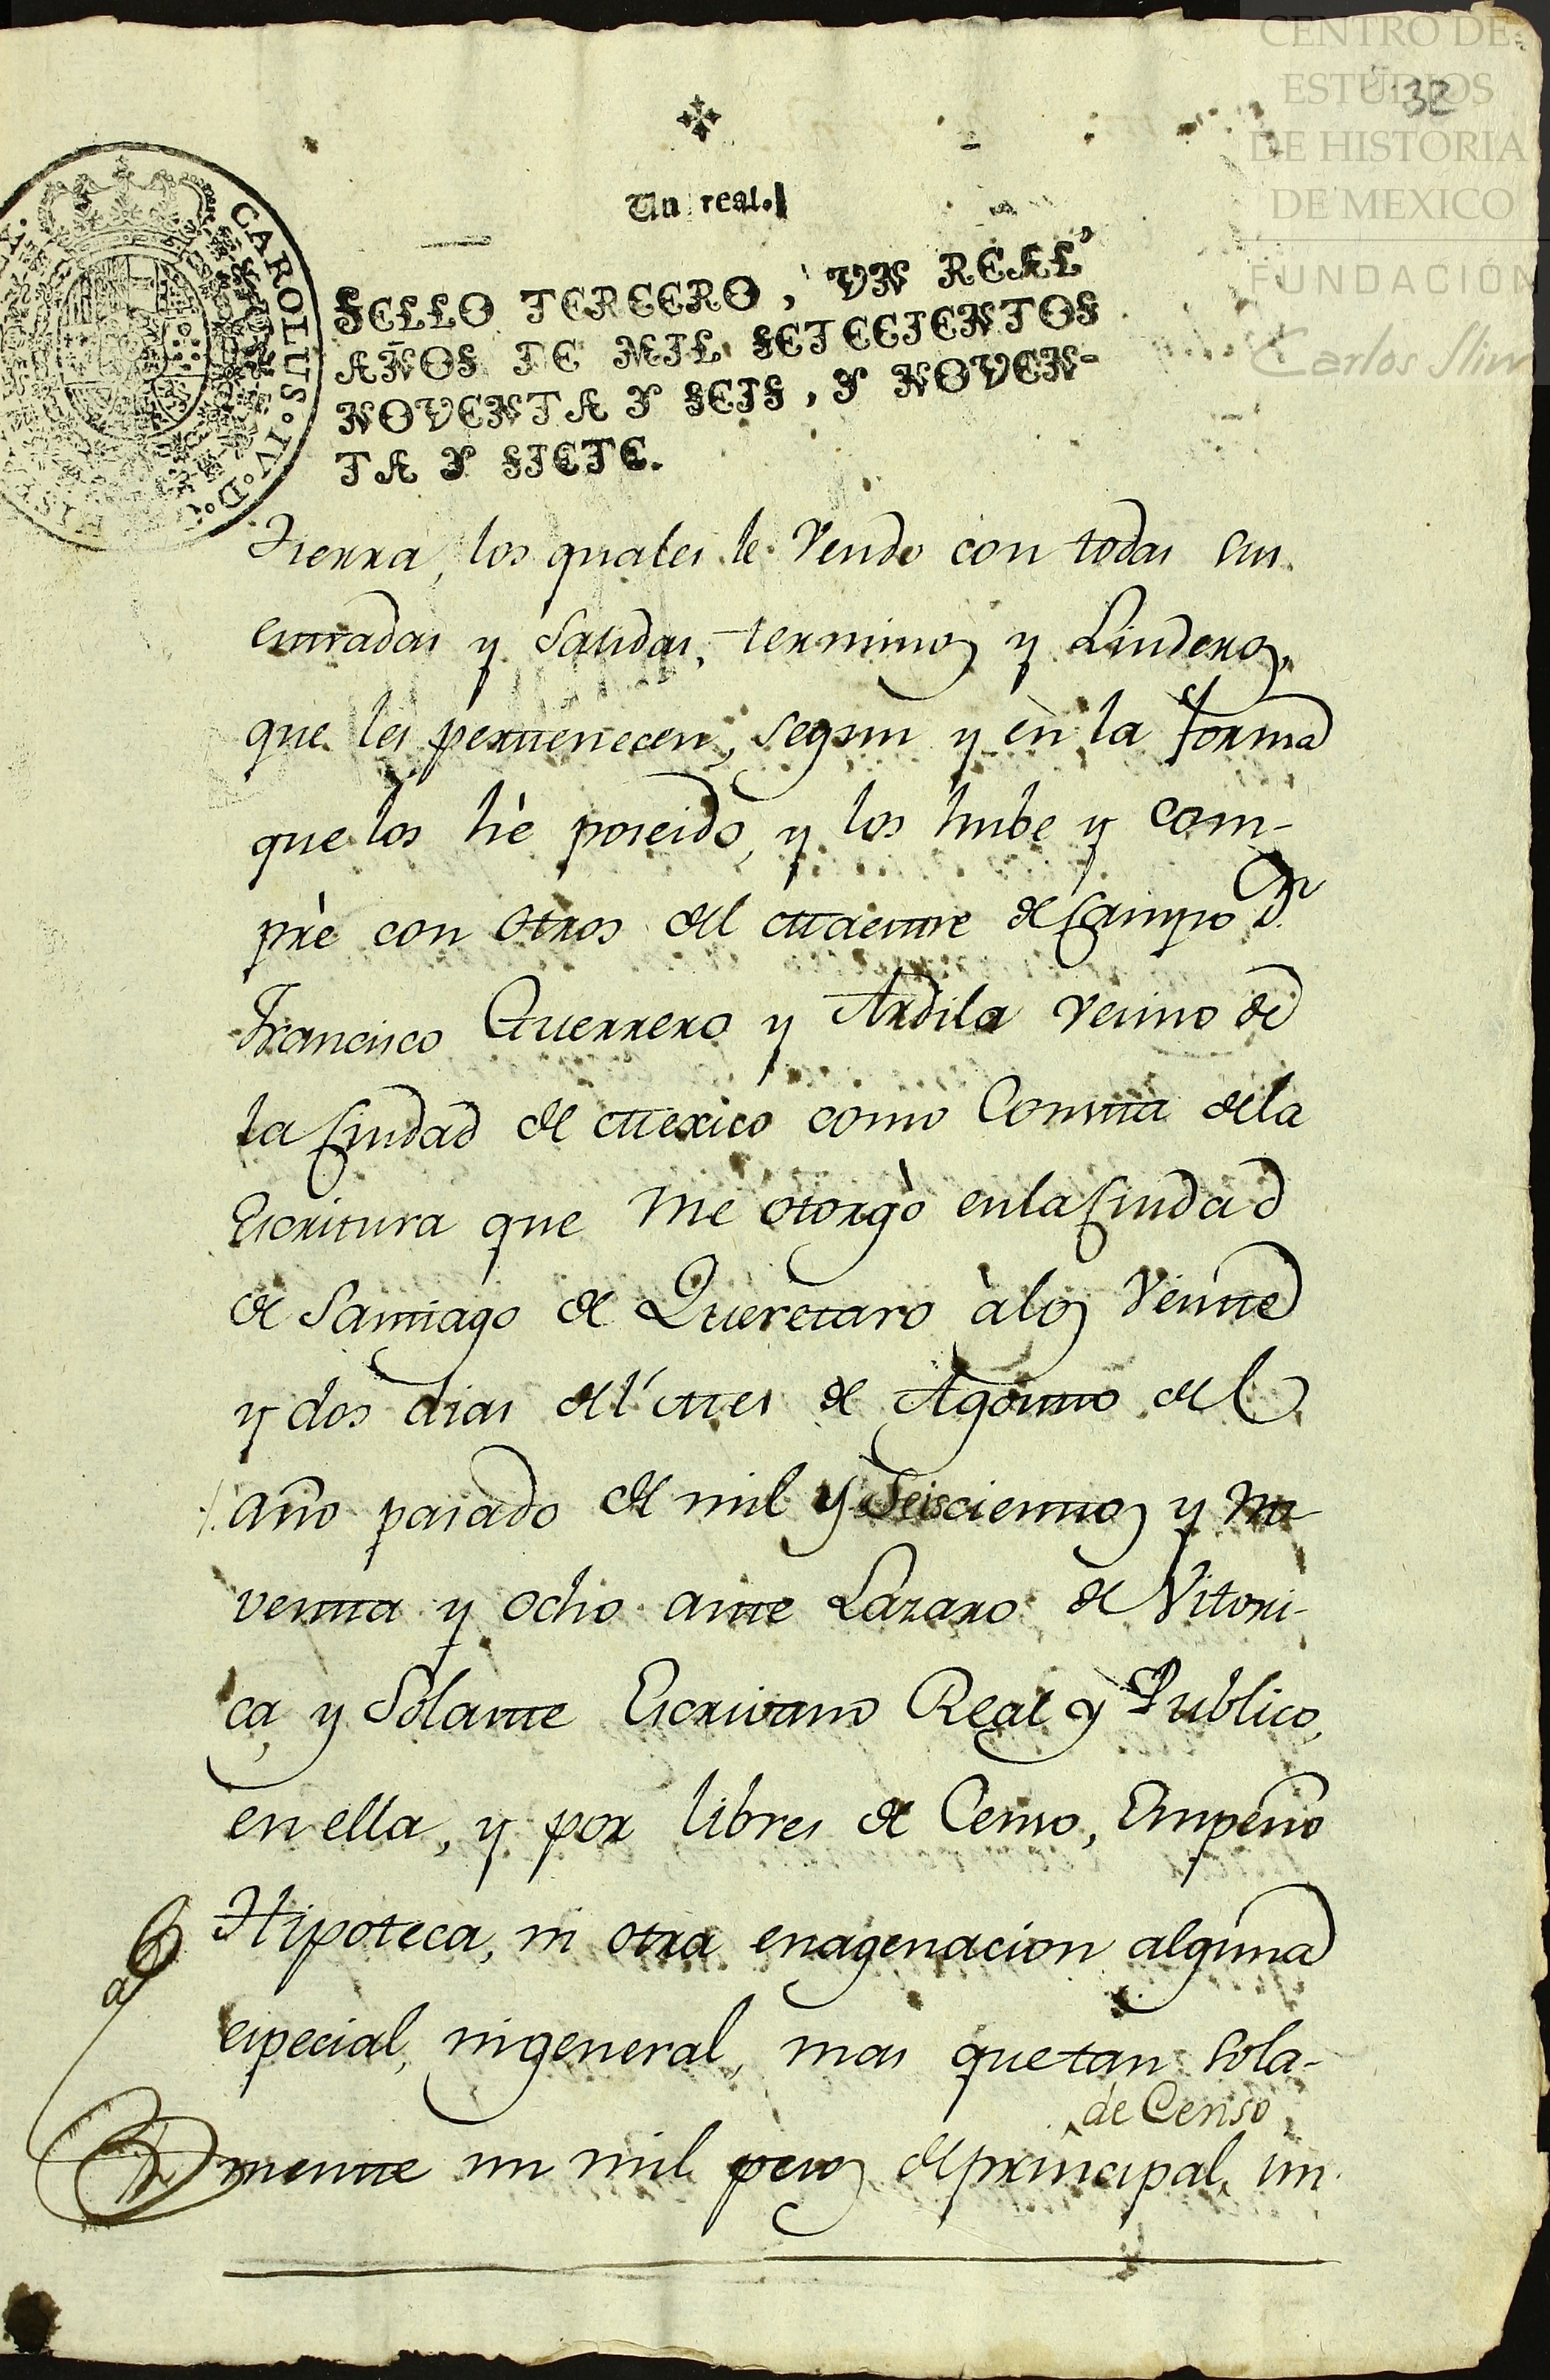 CENTRO DE
ESTUDIOS
DE HISTORIA
DE MEXICO
FUNDACIÓN
Carlos Slim
32
Un real.
SELLO TERCERO, VN REAL
AÑOS DE MIL SETECIENTOS
NOVENTA Y SEIS, Y NOVEN-
TA Y SIETE.
CAROLUS · IV · D · G ·
tierra, los quales le vendo con todas sus
entradas y salidas, terminos y Linderos,
que les pertenecen, segun y èn la forma
que los hè poseido, y los hube y com-
prè con otros del Maestre de Campo Dn
Francisco Guerrero y Ardila vecino de
la Ciudad de Mexico como Consta dela
Escritura que me otorgò enla Ciudad
de Santiago de Queretaro àlos Veinte
y dos dias del Mes de Agosto del
año pasado de mil y Seiscientos y no-
venta y ocho ante Lazaro de Vitori-
ca, y Solarte Escrivano Real y Publico,
en ella, y por libres de Censo, Empeño
Hipoteca, ni otra enagenacion alguna
especial, nigeneral, mas quetan sola-
de Censo
mente un mil pesos deprincipal, im